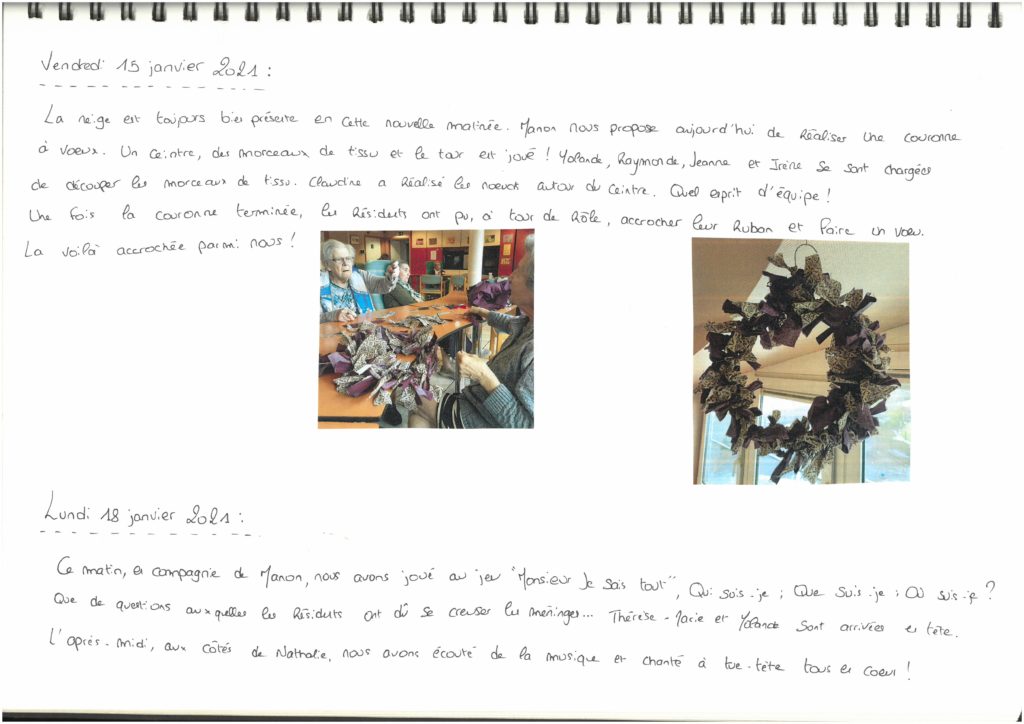 Vendredi 15 janvier 2021 :
La neige est toujours bien présente en cette nouvelle matinée. Manon nous propose aujourd'hui de Réaliser une couronne
à voeux. Un ceintre, des morceaux de tissu et le tour est joué ! Yolande, Raymonde, Jeanne et Irène se sont chargées
de découper les morceaux de tissu. Claudine a Réalisé les noeuds autour du ceintre. Quel esprit d'équipe !
Une fois la couronne terminée, les Résidents ont pu, à tour de Rôle, accrocher leur Ruban et faire un voeu.
La voilà accrochée parmi nous !
Lundi 18 janvier 2021 :
Ce matin, en compagnie de Manon, nous avons joué au jeu "Monsieur Je sais tout", Qui suis-je ; Que suis-je ; Où suis-je ?
Que de questions auxquelles les Résidents ont dû se creuser les méninges... Thérèse-Marie et Yolande sont arrivées en tête.
L'après-midi, aux côtés de Nathalie, nous avons écouté de la musique et chanté à tue-tête tous en coeur !